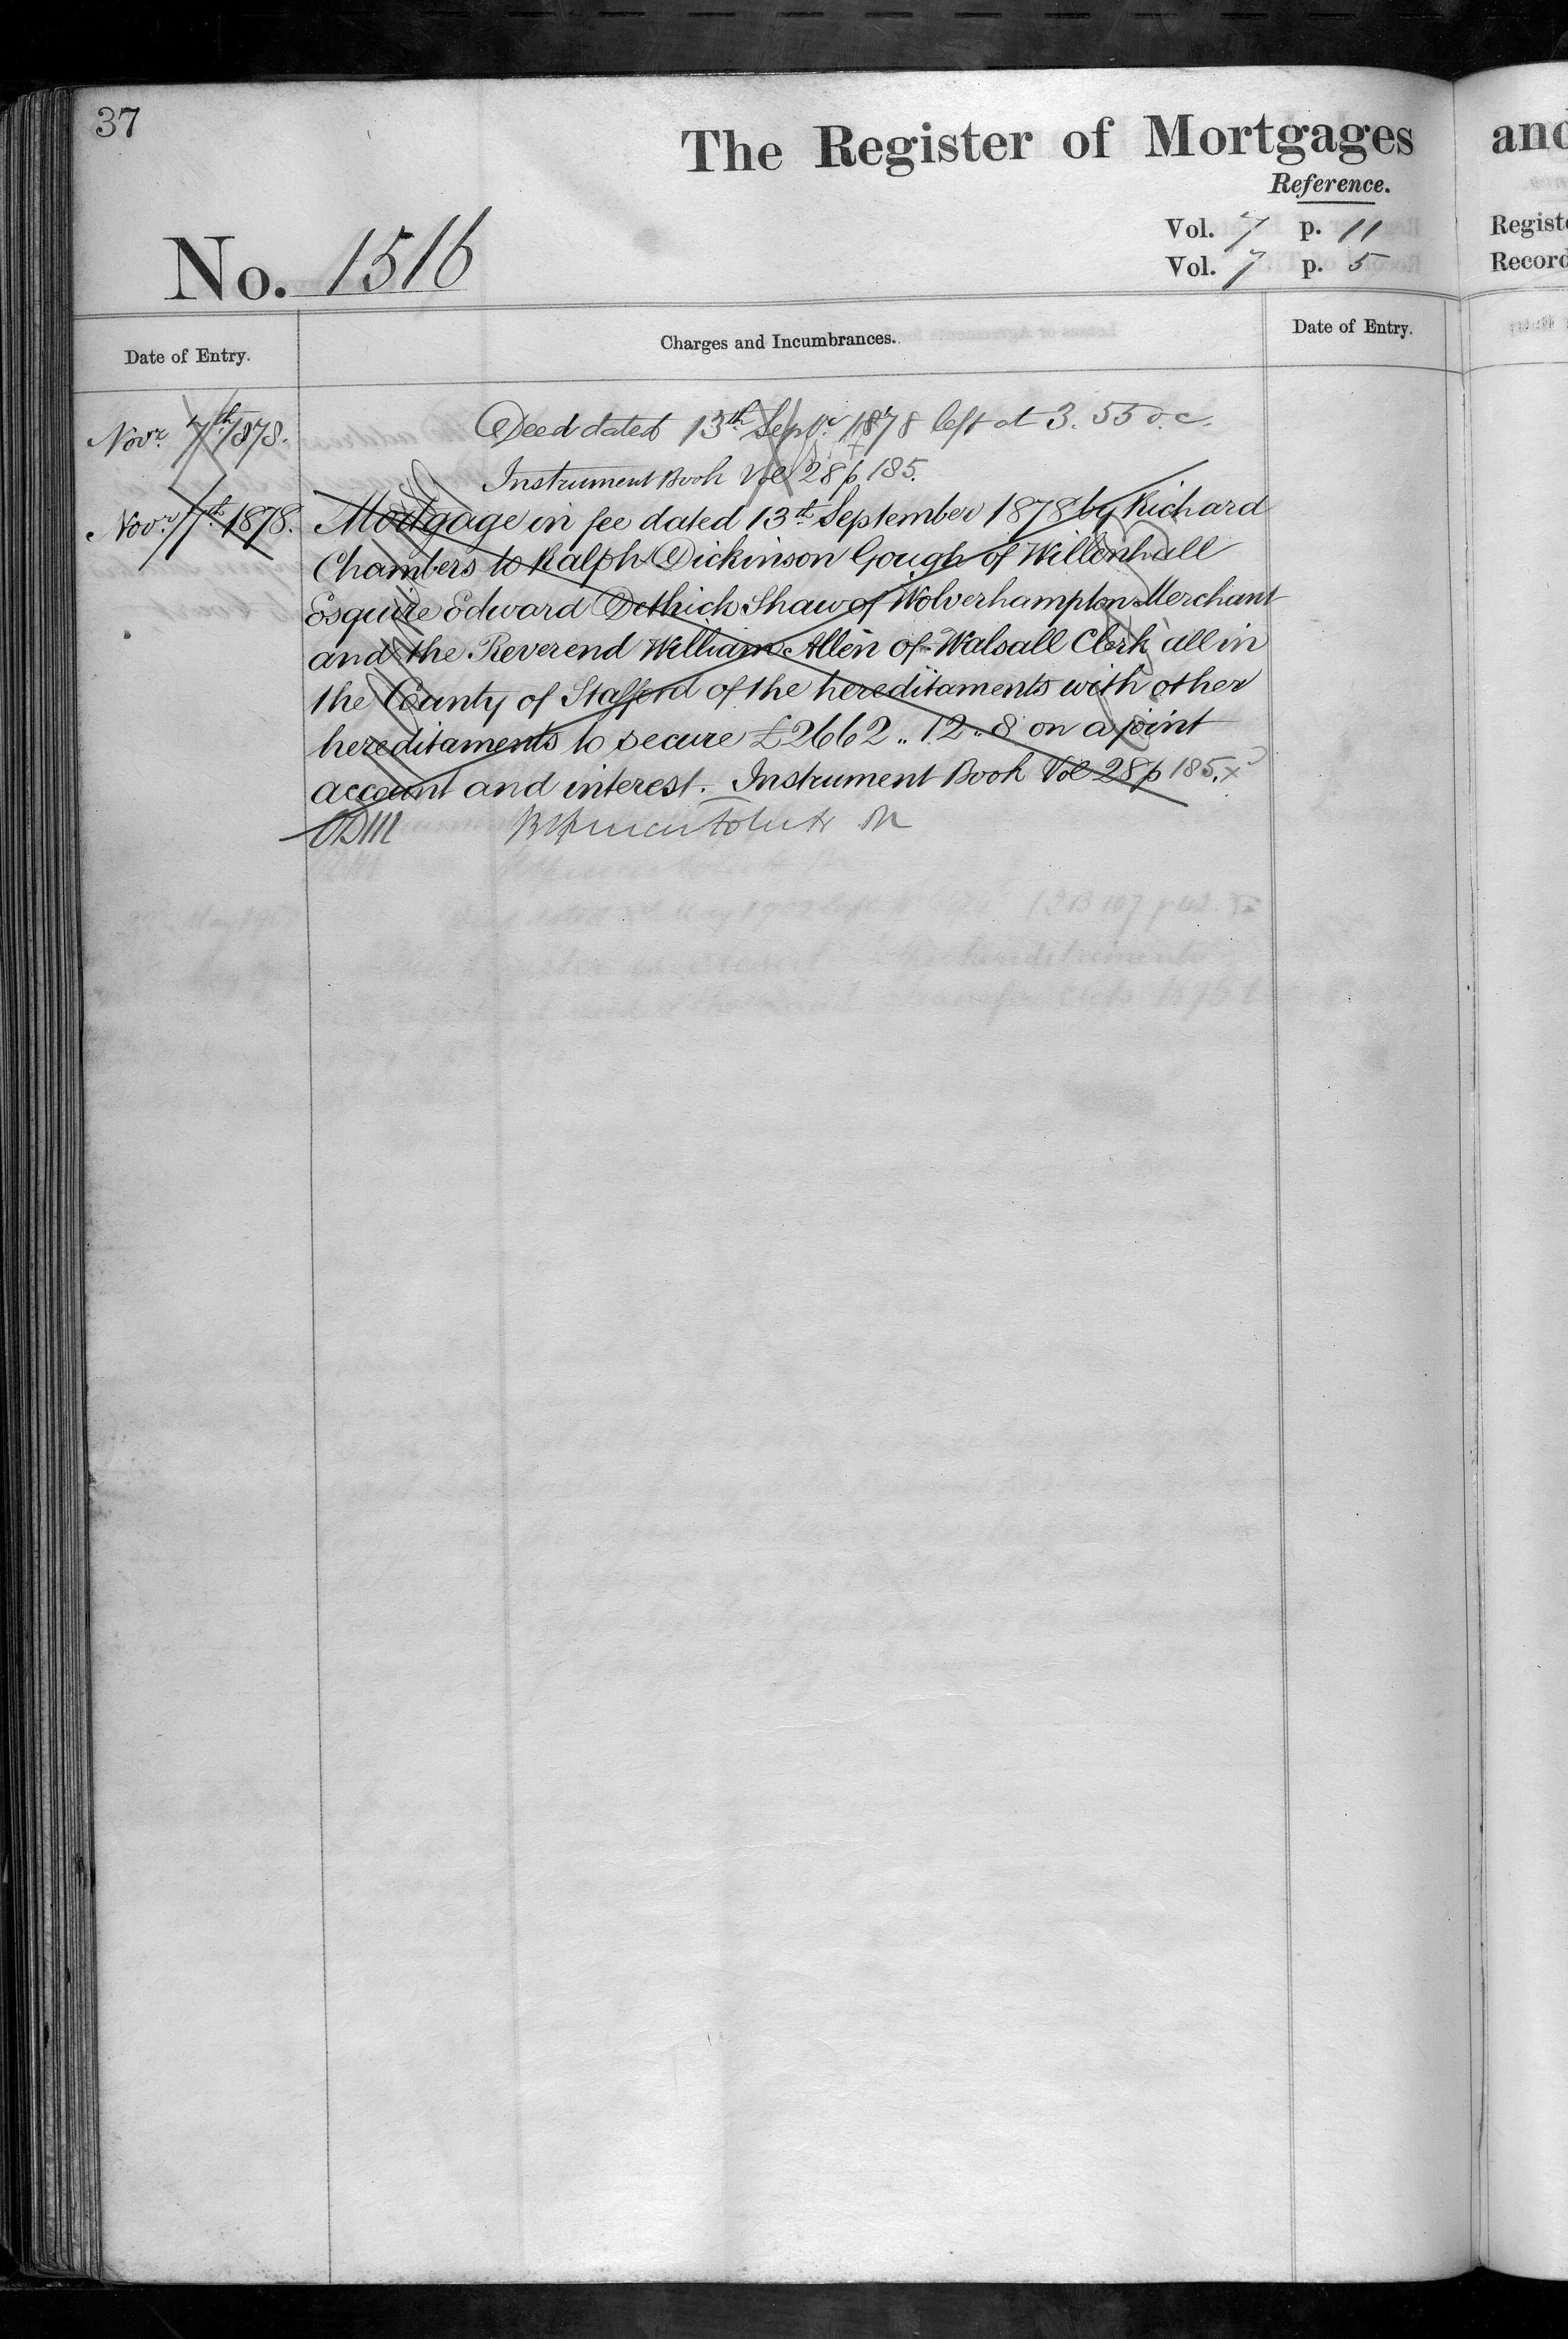 37
The Register of Mortgages
Reference.
No. 1516
Vol. 7 p. 11
Vol. 7 p. 5
Date of Entry.
Charges and Incumbrances.
Date of Entry.
Novr. 7th 1878.
Deed dated 13th Septr. 1878 left at 3.55 o.c.
Instrument Book Vol 28 p 185.
Novr. 7th 1878.
Mortgage in fee dated 13th September 1878 by Richard
Chambers to Ralph Dickinson Gough of Willenhall
Esquire Edward Dethick Shaw of Wolverhampton Merchant
and the Reverend William Allen of Walsall Clerk all in
the County of Stafford of the hereditaments with other
hereditaments to secure £2662 „ 12 „ 8 on a joint
account and interest. Instrument Book Vol 28 p 185.
and
Registe
Record